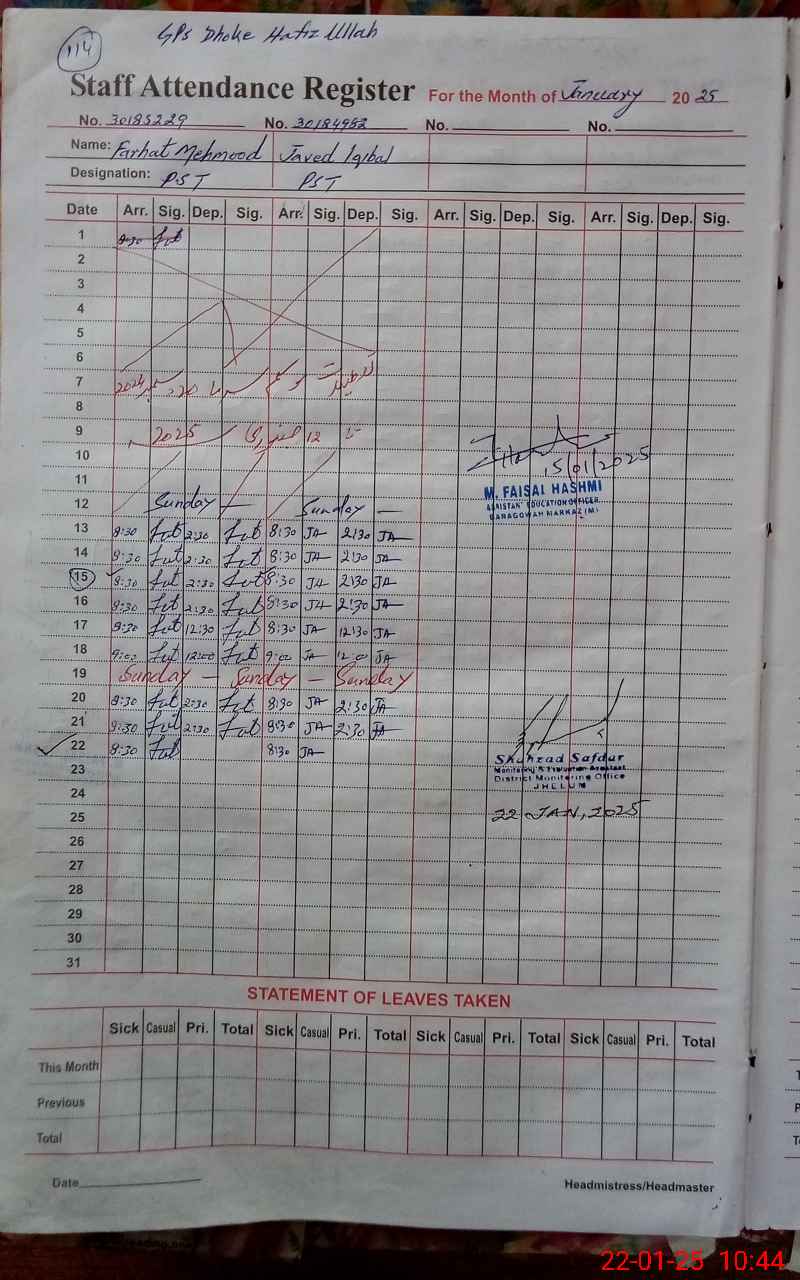 114
GPS Dhoke Hafiz Ullah
Staff Attendance Register For the Month of January 20 25
No. 30185229 No. 30184982 No. No.
Name: Farhat Mehmood Javed Iqbal
Designation: PST PST
Date Arr. Sig. Dep. Sig. Arr. Sig. Dep. Sig. Arr. Sig. Dep. Sig. Arr. Sig. Dep. Sig.
1 8:30
2
3
4
5
6
7 تعطیلات موسم سرما 20 دسمبر 2024
8
9 تا 12 جنوری 2025
10
15/01/2025
11
M. FAISAL HASHMI
12 Sunday — Sunday —
ASSISTANT EDUCATION OFFICER
DARAGOWAH MARKAZ (M)
13 8:30 2:30 8:30 JA 2:30 JA
14 8:30 2:30 8:30 JA 2:30 JA
15 8:30 2:30 8:30 JA 2:30 JA
16 8:30 2:30 8:30 JA 2:30 JA
17 8:30 12:30 8:30 JA 12:30 JA
18 9:00 12:00 9:00 JA 12:00 JA
19 Sunday — Sunday — Sunday
20 8:30 2:30 8:30 JA 2:30 JA
21 8:30 2:30 8:30 JA 2:30 JA
22 8:30 8:30 JA
Shahzad Safdar
23
Monitoring & Evaluation Assistant
District Monitoring Office
JHELUM
24
22 JAN, 2025
25
26
27
28
29
30
31
STATEMENT OF LEAVES TAKEN
Sick Casual Pri. Total Sick Casual Pri. Total Sick Casual Pri. Total Sick Casual Pri. Total
This Month
Previous
Total
Date
Headmistress/Headmaster
22-01-25 10:44